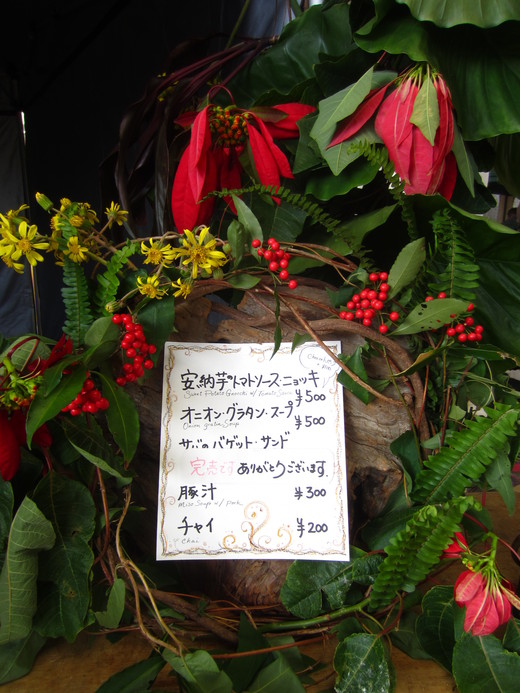 安納芋のトマトソース・ニョッキ
Sweet Potato Gnocchi w/ Tomato Sauce
¥500
オニオン・グラタン・スープ ¥500
Onion gratin Soup
サバのバゲット・サンド
完売です ありがとうございます
豚汁 ¥300
Miso Soup w/ Pork
チャイ ¥200
Chai